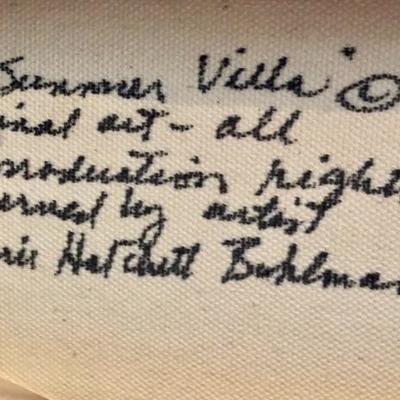 "Summer Villa" ©
ginal art - all
production rights
erved by artist
ris Hatchett Buhlman